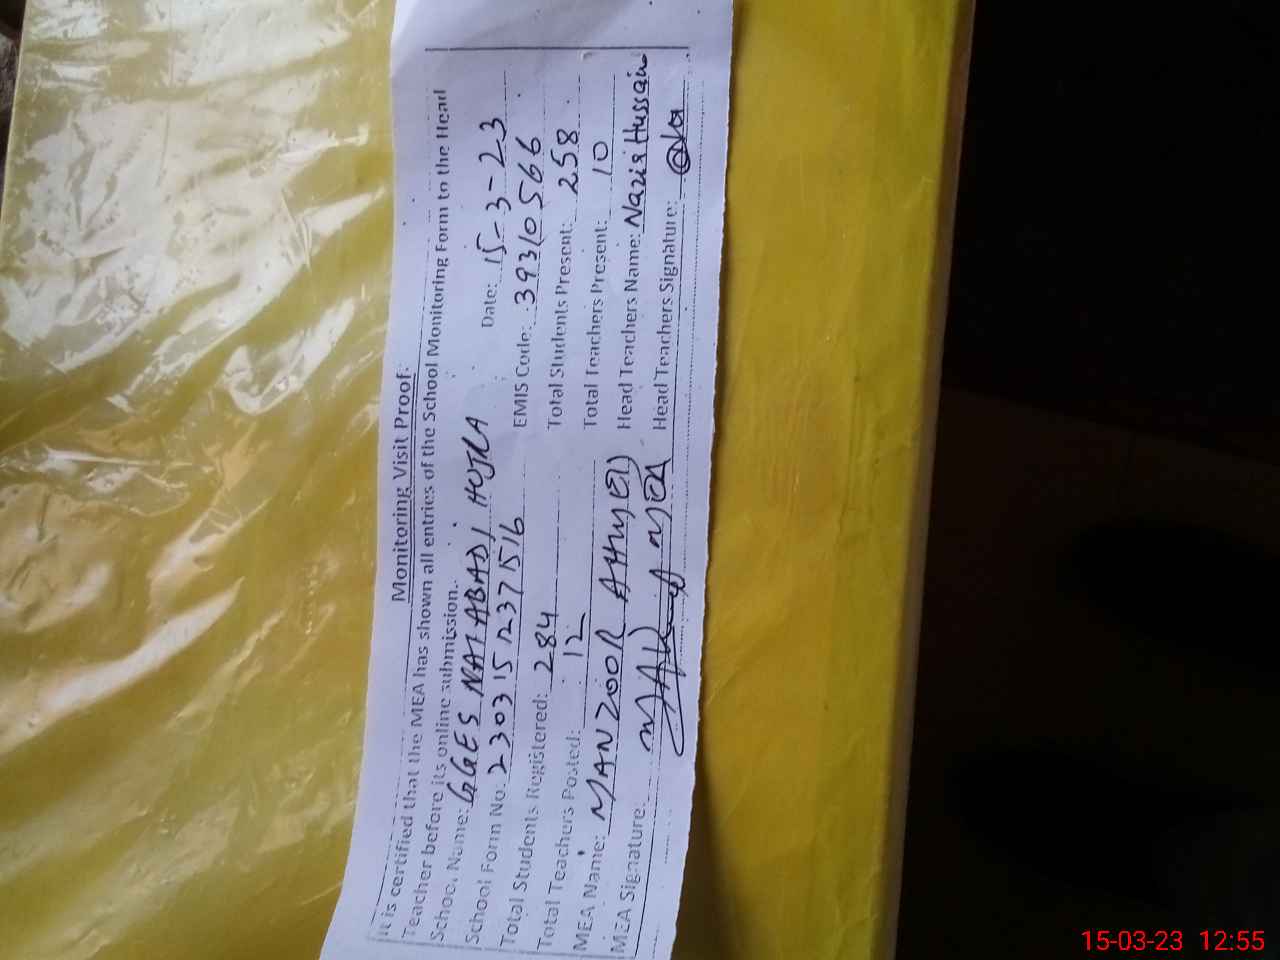 Monitoring Visit Proof:
It is certified that the MEA has shown all entries of the School Monitoring Form to the Head
Teacher before its online submission.
School Name: GGES NAI ABADI HUJRA Date: 15-3-23
School Form No. 23031512371516 EMIS Code: 39310566
Total Students Registered: 284 Total Students Present: 258
Total Teachers Posted: 12 Total Teachers Present: 10
MEA Name: MANZOOR AHMED Head Teachers Name: Nazir Hussain
MEA Signature: Head Teachers Signature:
15-03-23 12:55